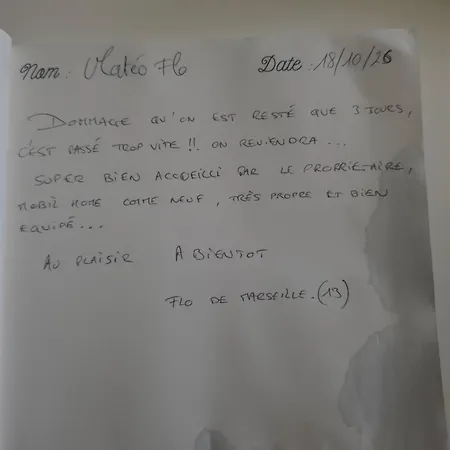 Nom : Matéo Flo Date : 18/10/26
DOMMAGE QU'ON EST RESTÉ QUE 3 JOURS,
C'EST PASSÉ TROP VITE !!. ON REVIENDRA ...
SUPER BIEN ACCUEILLI PAR LE PROPRIETAIRE,
MOBIL HOME COMME NEUF, TRÈS PROPRE ET BIEN
EQUIPÉ ...
AU PLAISIR A BIENTOT
FLO DE MARSEILLE. (13)